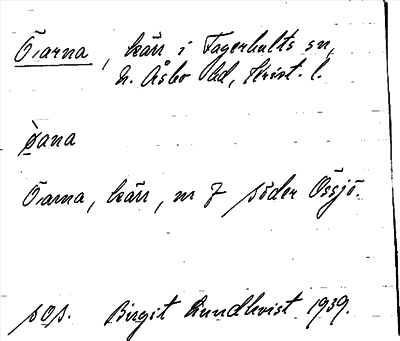 Öarna, kärr i Fagerhults sn,
N. Åsbo hd, Krist. l.
ö̀ana
Öarna, kärr, nr 7 söder Össjö.
sos. Birgit Rundkvist 1939.